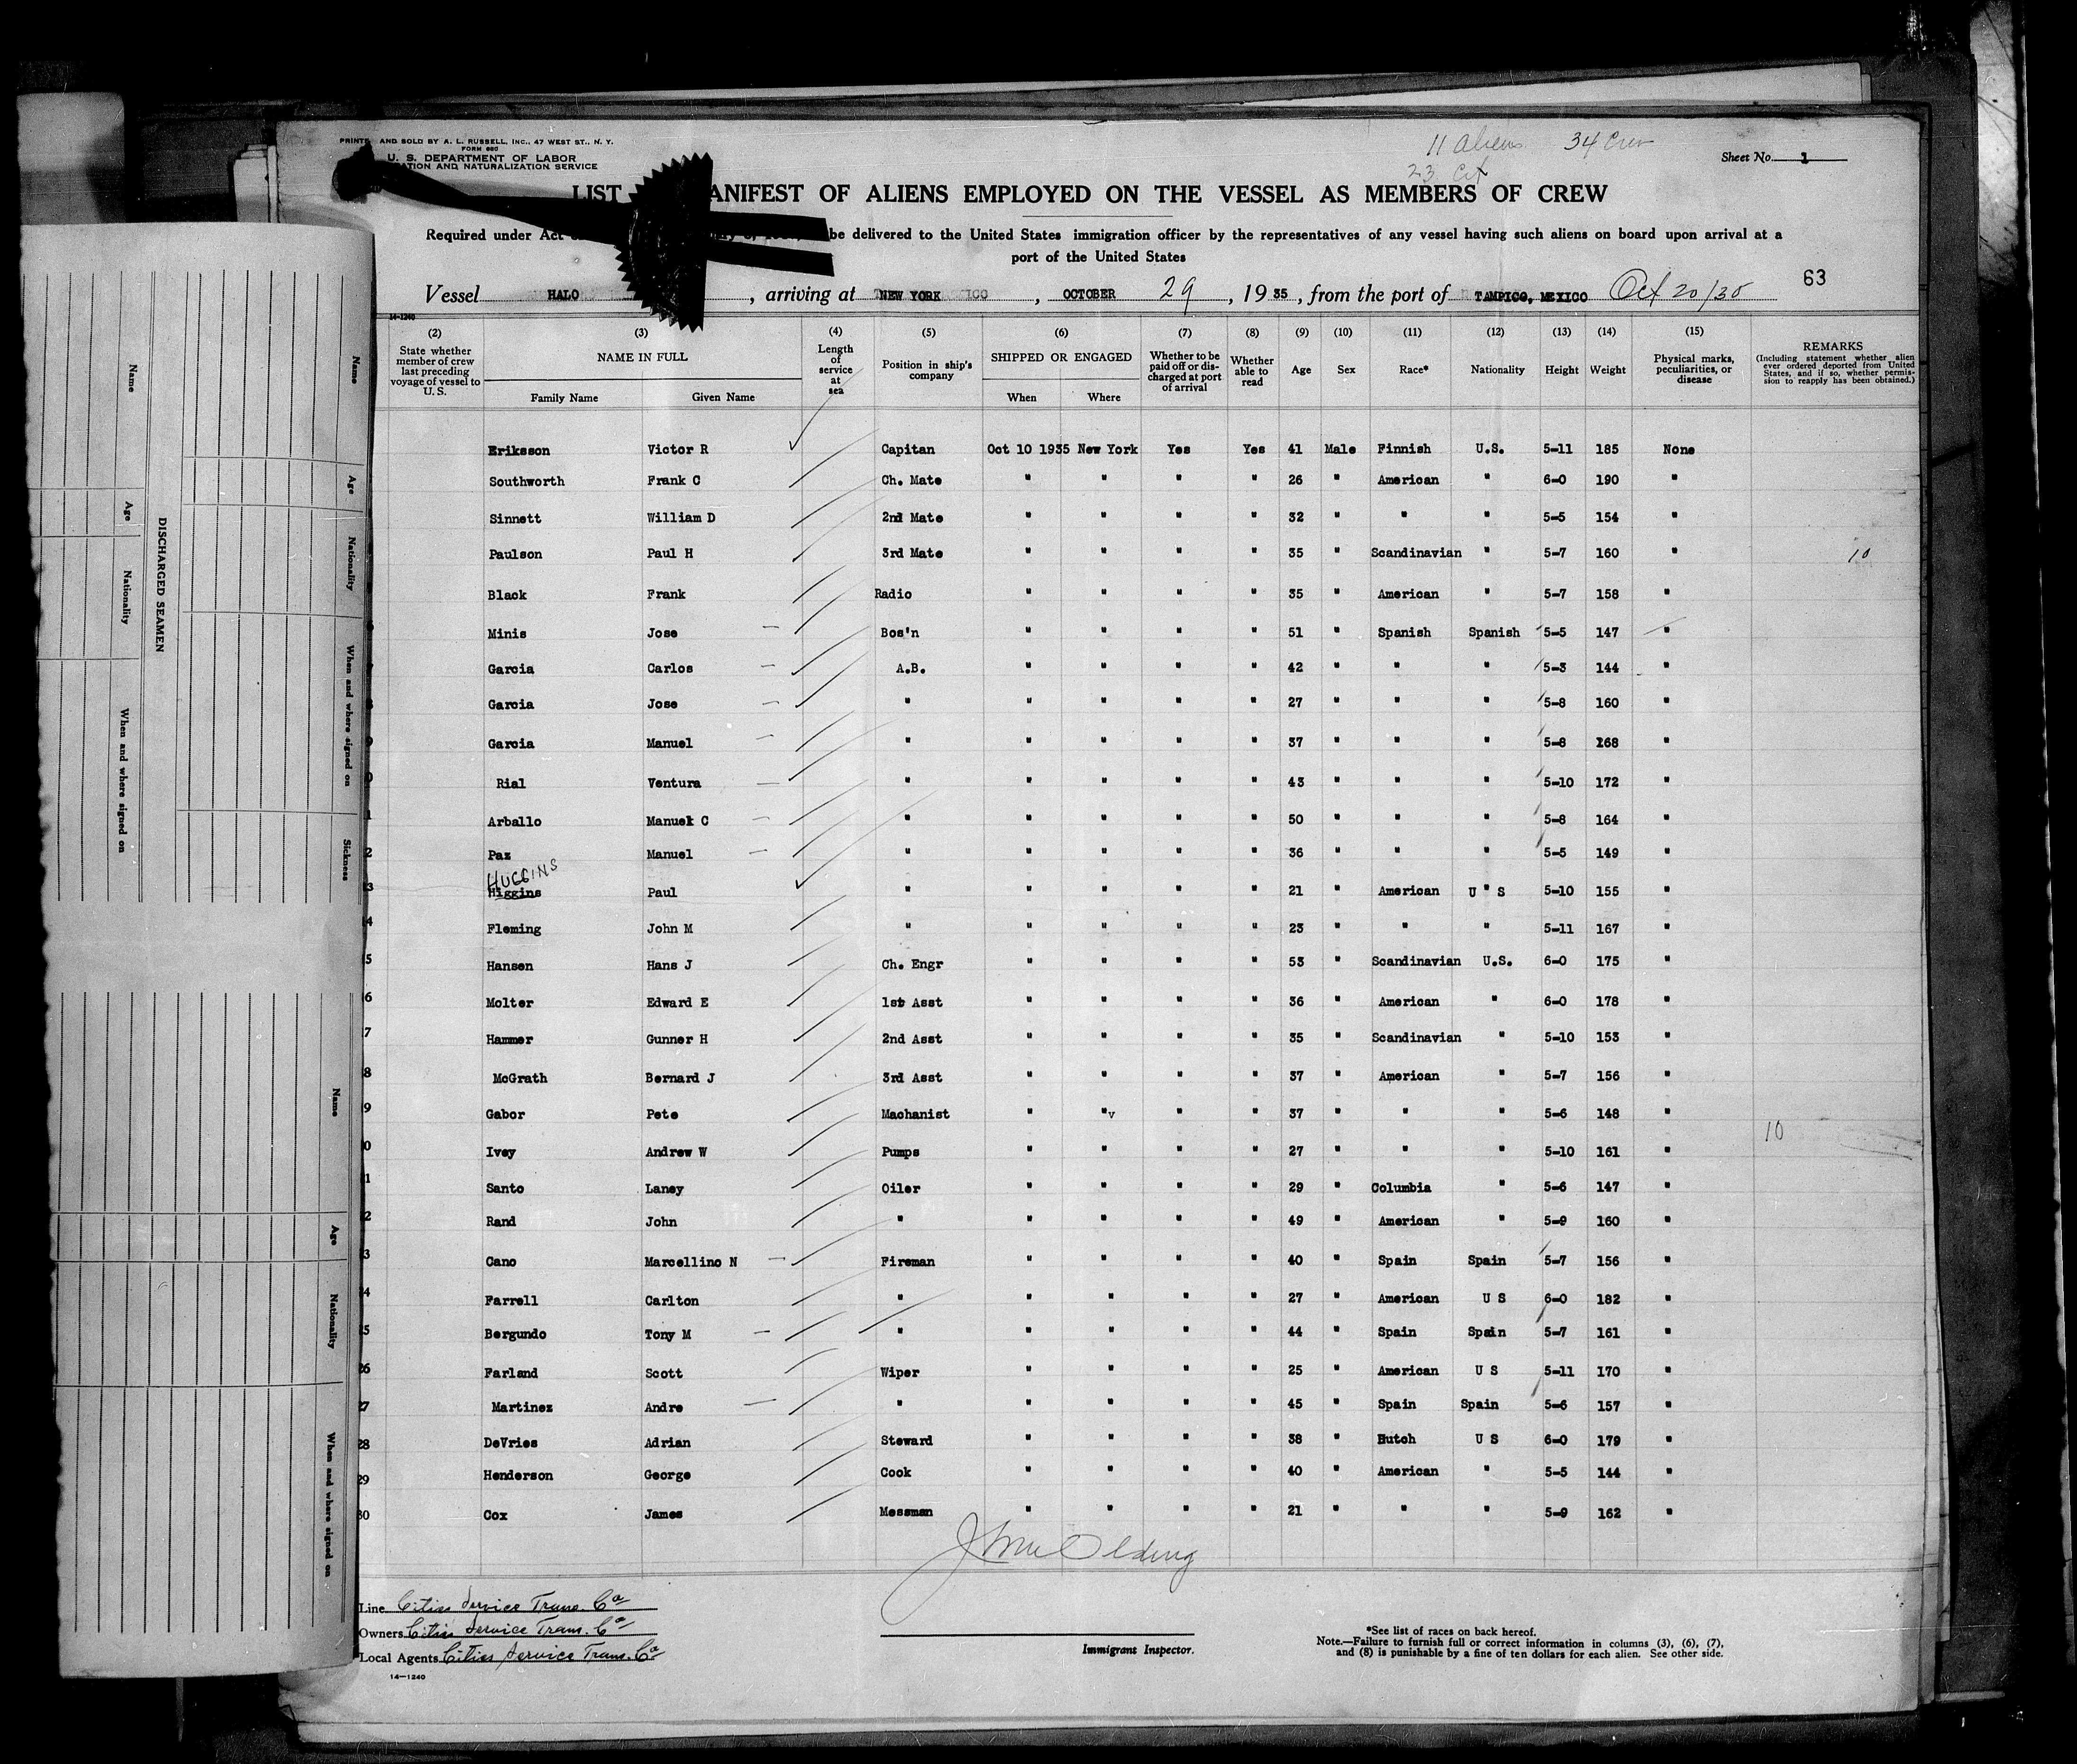 PRINTE AND SOLD BY A. L. RUSSELL, INC., 47 WEST ST., N. Y.
FORM 680
U. S. DEPARTMENT OF LABOR
ATION AND NATURALIZATION SERVICE
11 aliens 34 Crew
23 Cit
Sheet No. 1
LIST ANIFEST OF ALIENS EMPLOYED ON THE VESSEL AS MEMBERS OF CREW
Required under Act be delivered to the United States immigration officer by the representatives of any vessel having such aliens on board upon arrival at a
port of the United States
63
Vessel HALO, arriving at NEW YORK, OCTOBER 29, 1935, from the port of TAMPICO, MEXICO Oct 20/35
14-1240
(2) (3) (4) (5) (6) (7) (8) (9) (10) (11) (12) (13) (14) (15)
State whether member of crew last preceding voyage of vessel to U. S. NAME IN FULL Family Name Given Name Length of service at sea Position in ship's company SHIPPED OR ENGAGED When Where Whether to be paid off or discharged at port of arrival Whether able to read Age Sex Race* Nationality Height Weight Physical marks, peculiarities, or disease REMARKS (Including statement whether alien ever ordered deported from United States, and if so, whether permission to reapply has been obtained.)
Eriksson Victor R Capitan Oct 10 1935 New York Yes Yes 41 Male Finnish U.S. 5-11 185 None
Southworth Frank C Ch. Mate " " " " 26 " American " 6-0 190 "
Sinnett William D 2nd Mate " " " " 32 " " " 5-5 154 "
Paulson Paul H 3rd Mate " " " " 35 " Scandinavian " 5-7 160 " 10
Black Frank Radio " " " " 35 " American " 5-7 158 "
6 Minis Jose — Bos'n " " " " 51 " Spanish Spanish 5-5 147 "
7 Garcia Carlos — A.B. " " " " 42 " " " 5-3 144 "
8 Garcia Jose — " " " " " 27 " " " 5-8 160 "
9 Garcia Manuel — " " " " " 37 " " " 5-8 168 "
0 Rial Ventura — " " " " " 43 " " " 5-10 172 "
1 Arballo Manuel C — " " " " " 50 " " " 5-8 164 "
2 Paz Manuel — " " " " " 36 " " " 5-5 149 "
HUGGINS
3 Higgins Paul " " " " " 21 " American U " S 5-10 155 "
4 Fleming John M " " " " " 23 " " " 5-11 167 "
5 Hansen Hans J Ch. Engr " " " " 53 " Scandinavian U.S. 6-0 175 "
6 Molter Edward E 1st Asst " " " " 36 " American " 6-0 178 "
7 Hammer Gunner H 2nd Asst " " " " 35 " Scandinavian " 5-10 153 "
8 McGrath Bernard J 3rd Asst " " " " 37 " American " 5-7 156 "
9 Gabor Pete Machanist " "v " " 37 " " " 5-6 148 "
0 Ivey Andrew W Pumps " " " " 27 " " " 5-10 161 " 10
1 Santo Laney Oiler " " " " 29 " Columbia " 5-6 147 "
2 Rand John " " " " " 49 " American " 5-9 160 "
3 Cano Marcellino N — Fireman " " " " 40 " Spain Spain 5-7 156 "
4 Farrell Carlton " " " " " 27 " American U S 6-0 182 "
5 Bergundo Tony M — " " " " " 44 " Spain Spain 5-7 161 "
26 Farland Scott Wiper " " " " 25 " American U S 5-11 170 "
27 Martinez Andre — " " " " " 45 " Spain Spain 5-6 157 "
28 DeVries Adrian Steward " " " " 38 " Dutch U S 6-0 179 "
29 Henderson George Cook " " " " 40 " American " 5-5 144 "
30 Cox James Messman " " " " 21 " " " 5-9 162 "
Line Cities Service Trans. Co
Owners Cities Service Trans. Co
Local Agents Cities Service Trans. Co
14-1240
Immigrant Inspector.
*See list of races on back hereof.
Note.—Failure to furnish full or correct information in columns (3), (6), (7),
and (8) is punishable by a fine of ten dollars for each alien. See other side.
DISCHARGED SEAMEN
Name Age Nationality When and where signed on
Name Age Nationality When and where signed on Sickness
Name Age Nationality When and where signed on